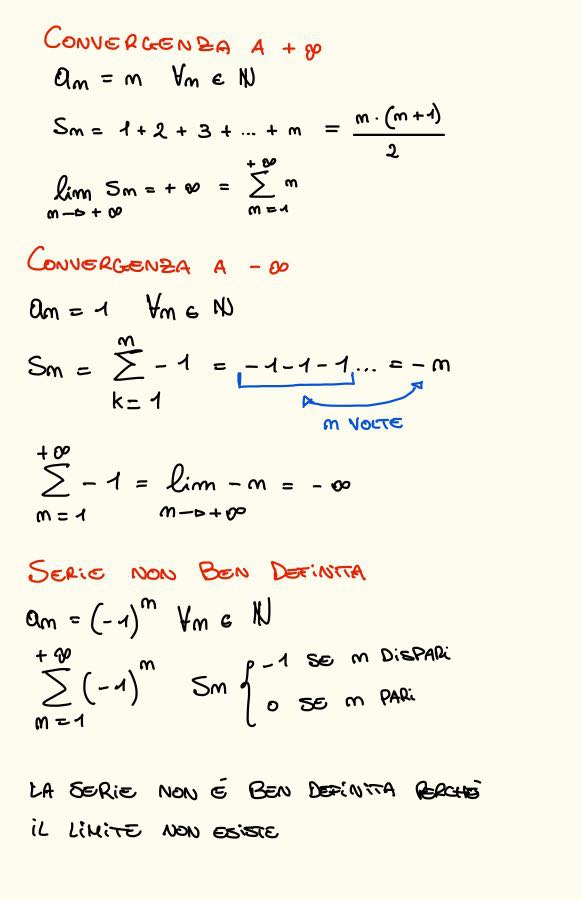 CONVERGENZA A +∞
an = n ∀n ∈ ℕ
Sn = 1 + 2 + 3 + ... + n = n·(n+1)/2
lim n→+∞ Sn = +∞ = ∑ n=1 +∞ n
CONVERGENZA A -∞
an = 1 ∀n ∈ ℕ
Sn = ∑ k=1 n -1 = -1-1-1... = -n
n VOLTE
∑ n=1 +∞ -1 = lim n→+∞ -n = -∞
SERIE NON BEN DEFINITA
an = (-1)^n ∀n ∈ ℕ
∑ n=1 +∞ (-1)^n Sn { -1 SE n DISPARI
0 SE n PARI
LA SERIE NON É BEN DEFINITA PERCHÉ
IL LIMITE NON ESISTE